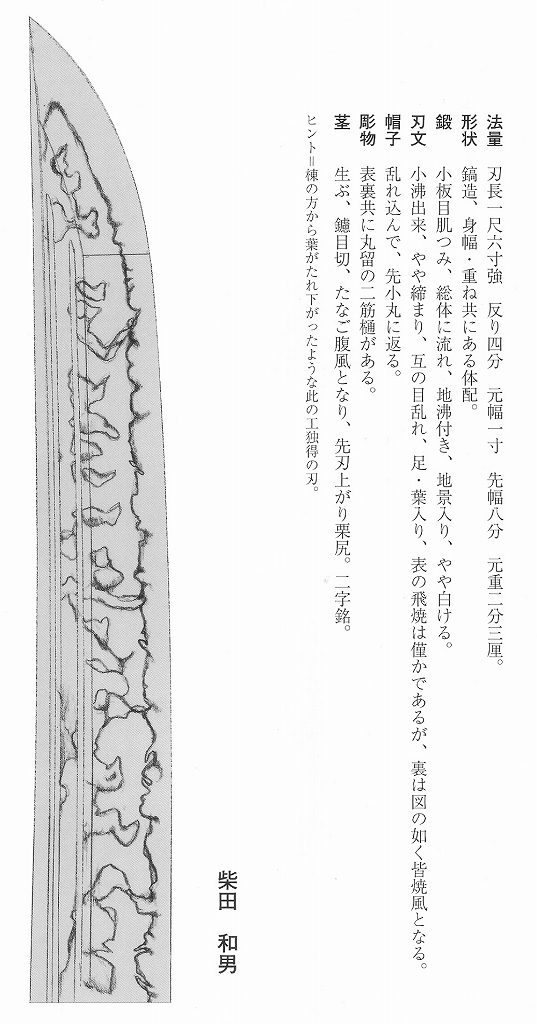 法量 刃長一尺六寸強 反り四分 元幅一寸 先幅八分 元重二分三厘。
形状 鎬造、身幅・重ね共にある体配。
鍛 小板目肌つみ、総体に流れ、地沸付き、地景入り、やや白ける。
刃文 小沸出来、やや締まり、互の目乱れ、足・葉入り、表の飛焼は僅かであるが、裏は図の如く皆焼風となる。
帽子 乱れ込んで、先小丸に返る。
彫物 表裏共に丸留の二筋樋がある。
茎 生ぶ、鑢目切、たなご腹風となり、先刃上がり栗尻。二字銘。
ヒント＝棟の方から葉がたれ下がったような此の工独得の刃。
柴田 和男